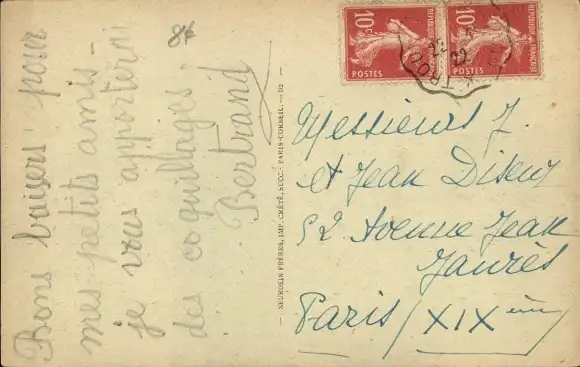 Bons baisers pour
mes petits amis -
je vous apporterai
des coquillages.
Bertrand
84
— NEURDEIN FRÈRES, IMP. CRÉTÉ, SUCC. PARIS-CORBEIL. — D2 —
10c
RÉPUBLIQUE FRANÇAISE
POSTES
10c
RÉPUBLIQUE FRANÇAISE
POSTES
Messieurs J.
et Jean
52 Avenue Jean
Jaurès
Paris / XIXème /